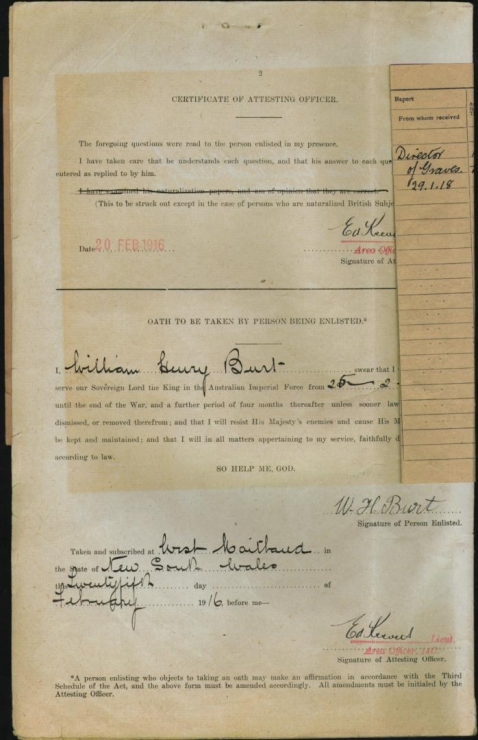 2
CERTIFICATE OF ATTESTING OFFICER.
The foregoing questions were read to the person enlisted in my presence.
I have taken care that he understands each question, and that his answer to each que
entered as replied to by him.
I have examined his naturalization papers, and am of opinion that they are correct.
(This to be struck out except in the case of persons who are naturalized British Subje
Date 20 FEB. 1916
Area Offi
Signature of At
Report
From whom received
Director
of Graves.
29.1.18
OATH TO BE TAKEN BY PERSON BEING ENLISTED.*
I, William Henry Burt swear that I
serve our Sovereign Lord the King in the Australian Imperial Force from 25 2
until the end of the War, and a further period of four months thereafter unless sooner law
dismissed, or removed therefrom; and that I will resist His Majesty's enemies and cause His M
be kept and maintained; and that I will in all matters appertaining to my service, faithfully d
according to law.
SO HELP ME, GOD.
W. H. Burt
Signature of Person Enlisted.
Taken and subscribed at West Maitland in
the State of New South Wales
this Twentyfifth day of
February 1916, before me—
Lieut.
Area Officer,
Signature of Attesting Officer.
*A person enlisting who objects to taking an oath may make an affirmation in accordance with the Third
Schedule of the Act, and the above form must be amended accordingly. All amendments must be initialed by the
Attesting Officer.